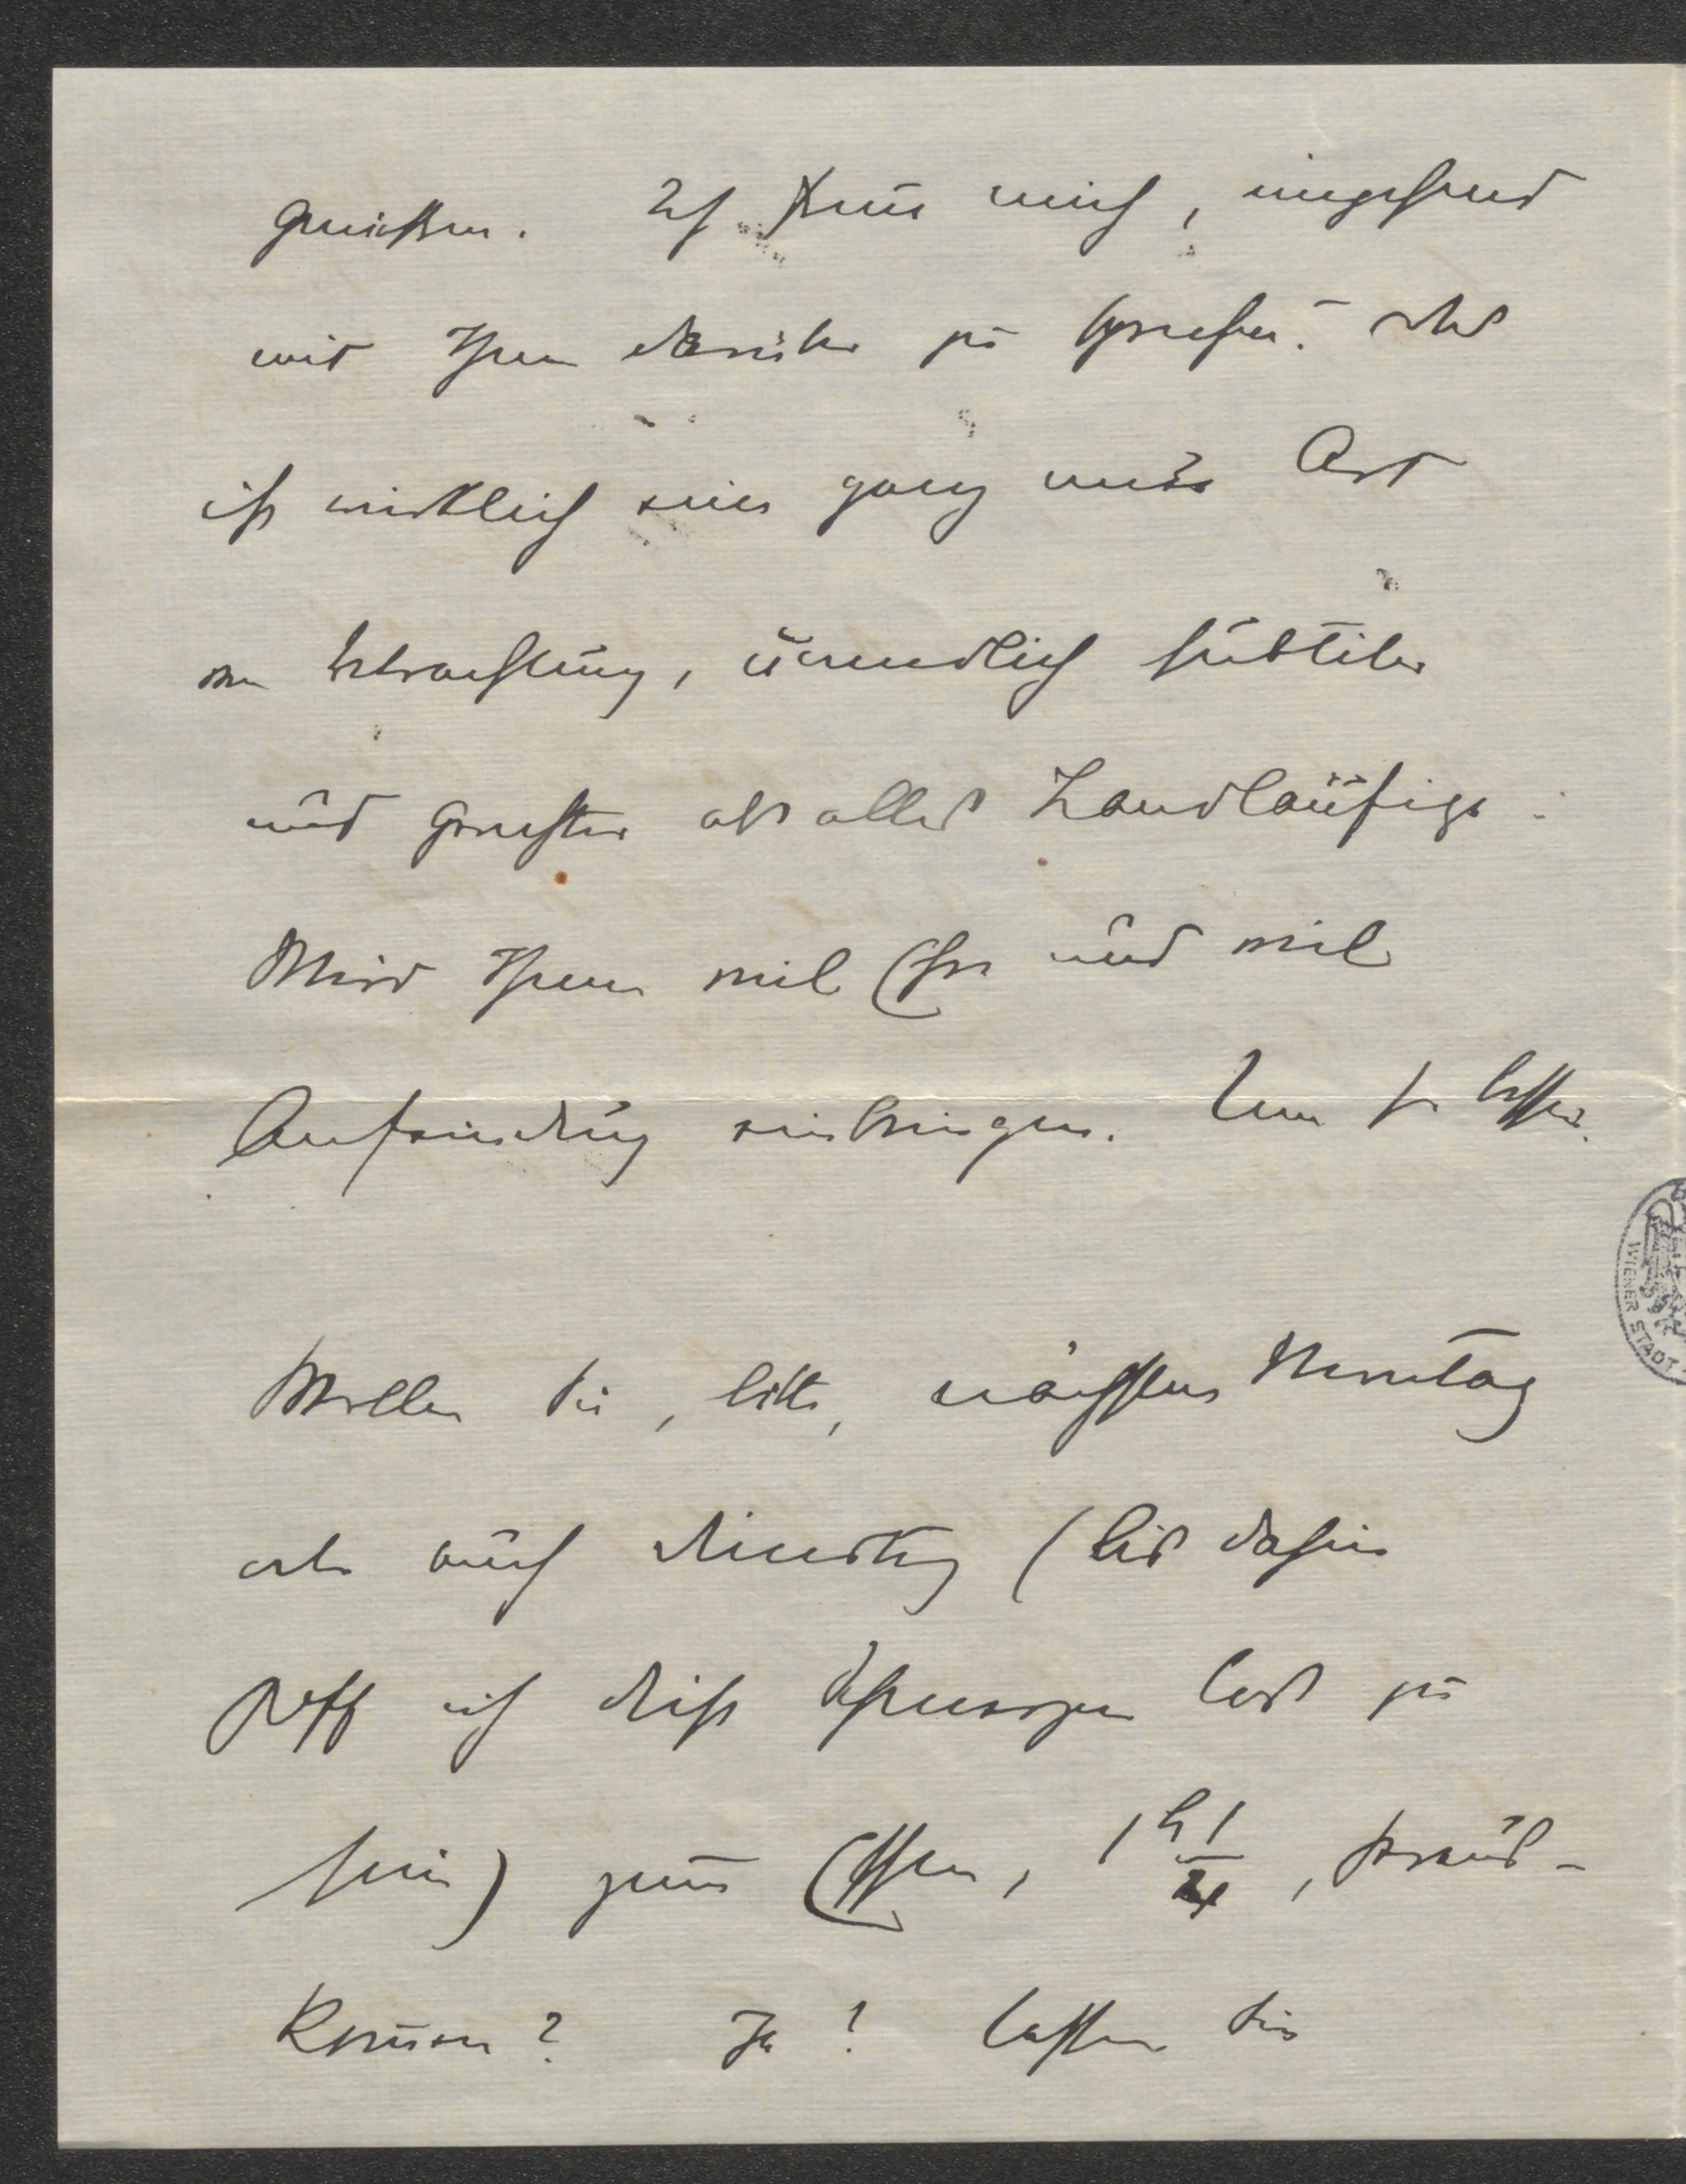 genießen. Ich freue mich, eingehend
mit Ihnen darüber zu sprechen. Das
ist wirklich eine ganz neue Art
von Betrachtung, unendlich subtiler
und gerechter als alles Landläufige.
Wird Ihnen viel Ehre und viel
Anfeindung einbringen. Um so besser.
Wollen Sie, bitte, nächsten Montag
oder auch Dienstag (bis dahin
hoffe ich diese los zu
sein) zum Essen, 1 h 1/4, heraus-
kommen? Ja! Lassen Sie
WIENER STADT